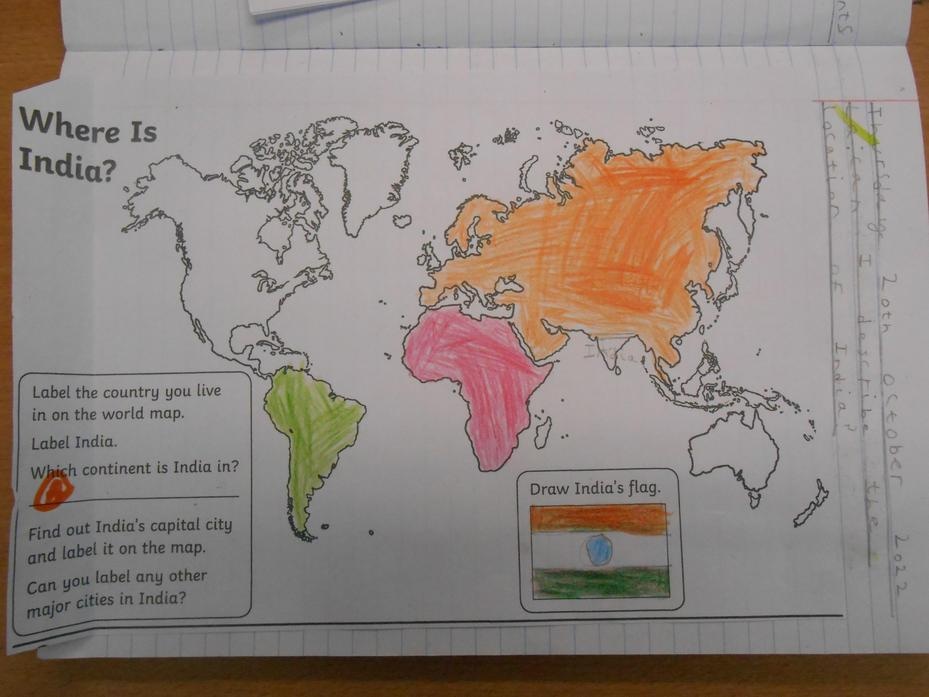 Where Is
India?
Label the country you live
in on the world map.
Label India.
Which continent is India in?
Find out India's capital city
and label it on the map.
Can you label any other
major cities in India?
India
Draw India's flag.
Thursday 20th October 2022
L.O. can I describe the
location of India?
nts